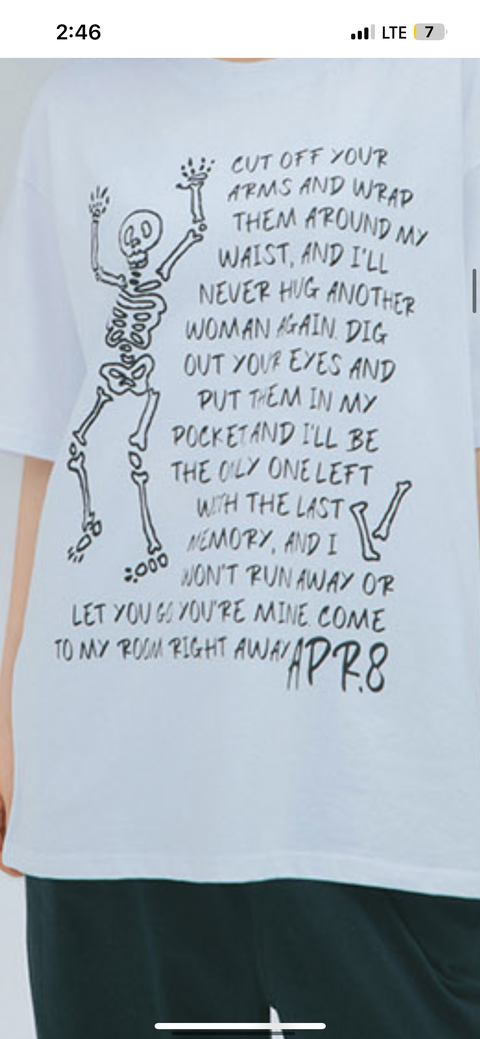 2:46
LTE
7
CUT OFF YOUR
ARMS AND WRAP
THEM AROUND MY
WAIST, AND I'LL
NEVER HUG ANOTHER
WOMAN AGAIN. DIG
OUT YOUR EYES AND
PUT THEM IN MY
POCKET AND I'LL BE
THE ONLY ONE LEFT
WITH THE LAST
MEMORY, AND I
WON'T RUN AWAY OR
LET YOU GO YOU'RE MINE. COME
TO MY ROOM RIGHT AWAY
APR.8